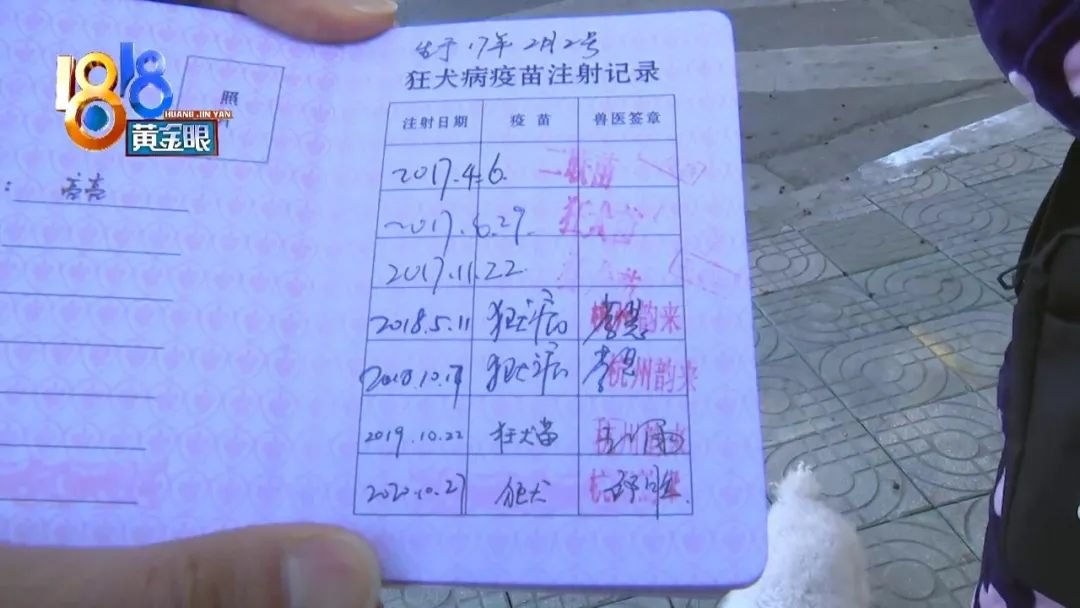 1818
HUANG JIN YAN
黄金眼
照
亮亮
生于17年2月2号
狂犬病疫苗注射记录
注射日期 疫苗 兽医签章
2017.4.6. 二联苗
2017.6.29.
2017.11.22.
2018.5.11 狂犬病 韵来
2018.10.17 狂犬病 杭州韵来
2019.10.22 狂犬苗
2020.10.27 狂犬